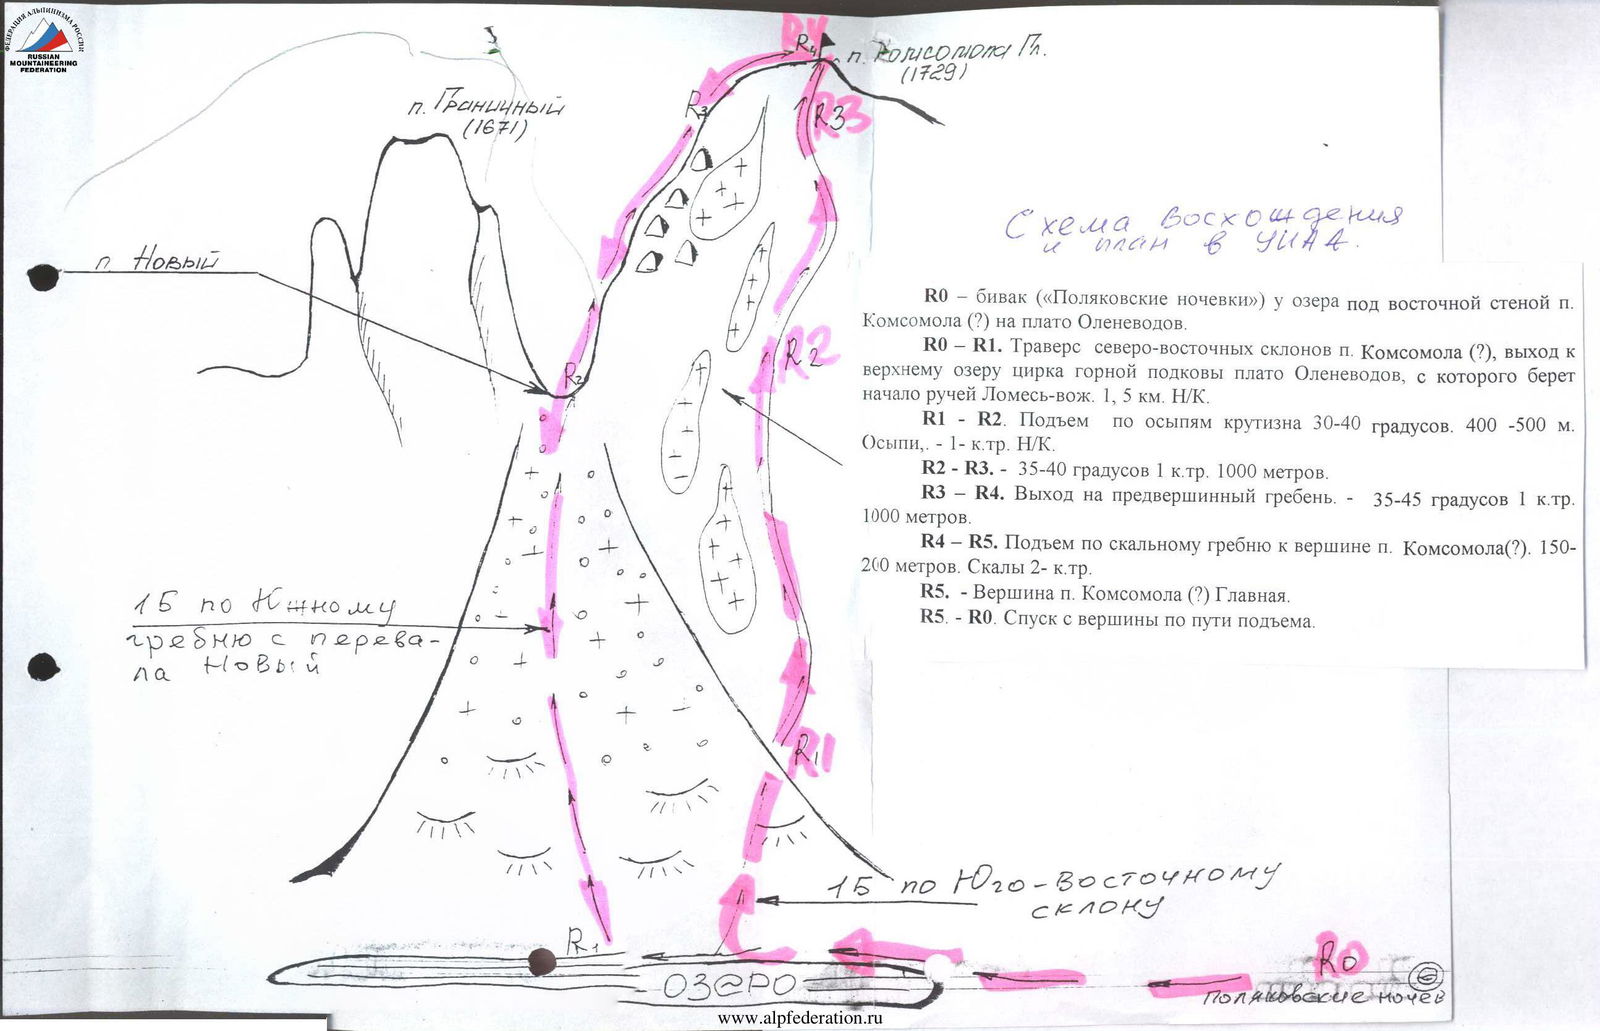 ФЕДЕРАЦИЯ АЛЬПИНИЗМА РОССИИ
RUSSIAN
MOUNTAINEERING
FEDERATION
R4
R4
п. Комсомола Гл.
(1729)
п. Граничный
(1671)
R3
R3
R3
Схема восхождения
и план в УИАА.
п. Новый
R0 – бивак («Поляковские ночевки») у озера под восточной стеной п.
Комсомола (?) на плато Оленеводов.
R0 – R1. Траверс северо-восточных склонов п. Комсомола (?), выход к
верхнему озеру цирка горной подковы плато Оленеводов, с которого берет
начало ручей Ломесь-вож. 1, 5 км. Н/К.
R1 - R2. Подъем по осыпям крутизна 30-40 градусов. 400 -500 м.
Осыпи,. - 1- к.тр. Н/К.
R2 - R3. - 35-40 градусов 1 к.тр. 1000 метров.
R3 – R4. Выход на предвершинный гребень. - 35-45 градусов 1 к.тр.
1000 метров.
R4 – R5. Подъем по скальному гребню к вершине п. Комсомола(?). 150-
200 метров. Скалы 2- к.тр.
R5. - Вершина п. Комсомола (?) Главная.
R5. - R0. Спуск с вершины по пути подъема.
R2
R2
1Б по Южному
гребню с перева-
ла Новый
R1
1Б по Юго-Восточному
склону
R1
R0
ОЗЕРО
Поляковские ночев
www.alpfederation.ru